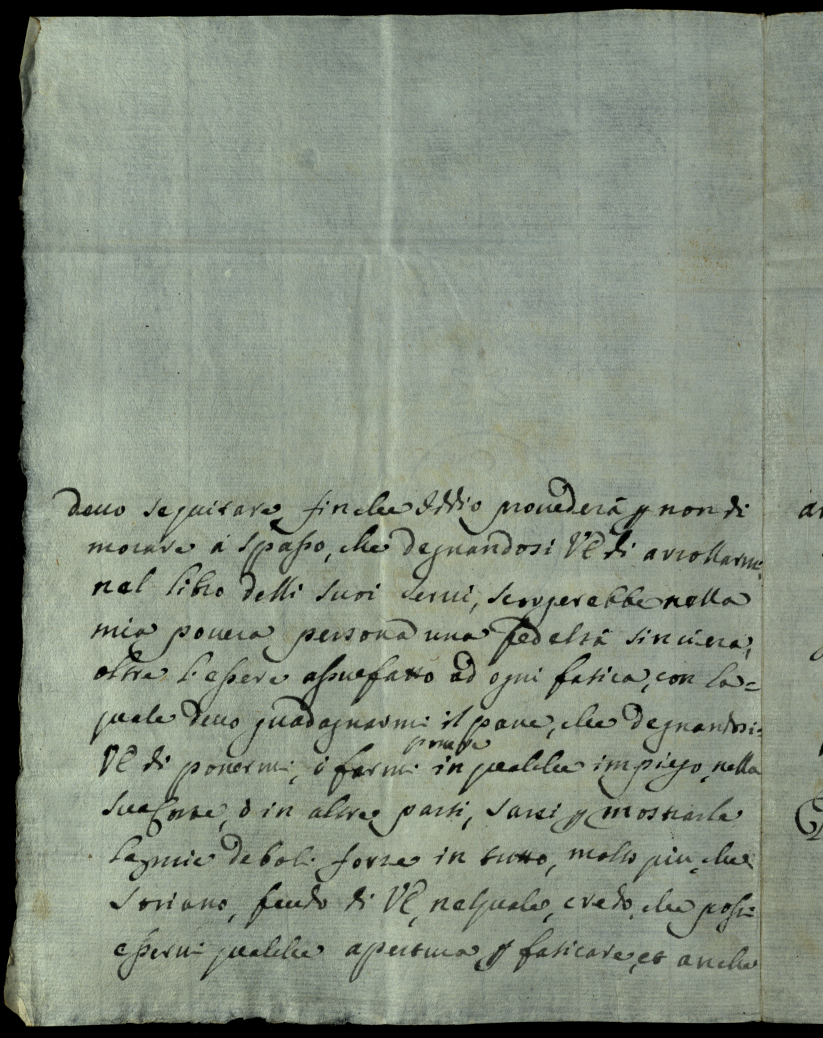 deuo seguitare, finche Iddio prouederà p non di
morare à spasso, che degnandosi VE di arrollarmi
nel libro delli suoi serui, scorgerebbe nella
mia pouera persona una fedeltà sincera,
oltre l'essere assuefatto ad ogni fatica, con la=
quale deuo guadagnarmi il pane, che degnandosi
VE di ponermi, ò farmi porre in qualche impiego, nella
sua Corte, ò in altre parti, sarei p mostrarle
le mie deboli forze in tutto, molto più, che
Soriano, feudo di VE, nel quale, credo, che possi
esserui qualche apertura p faticare, et anche